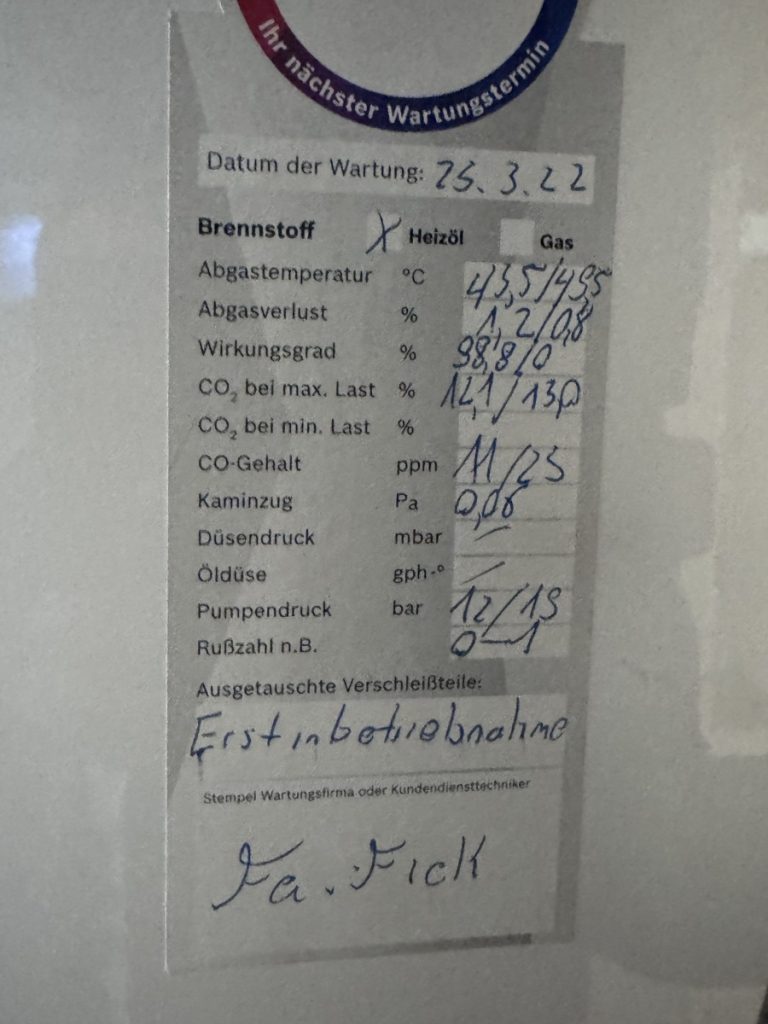 Ihr nächster Wartungstermin
Datum der Wartung: 25.3.22
Brennstoff X Heizöl Gas
Abgastemperatur °C 43,5/49,5
Abgasverlust % 1,2/0,8
Wirkungsgrad % 98,8/0
CO₂ bei max. Last % 12,1/13,0
CO₂ bei min. Last %
CO-Gehalt ppm 11/23
Kaminzug Pa 0,06
Düsendruck mbar –
Öldüse gph-° –
Pumpendruck bar 12/19
Rußzahl n.B. 0–1
Ausgetauschte Verschleißteile:
Erstinbetriebnahme
Stempel Wartungsfirma oder Kundendiensttechniker
Fa. Fick